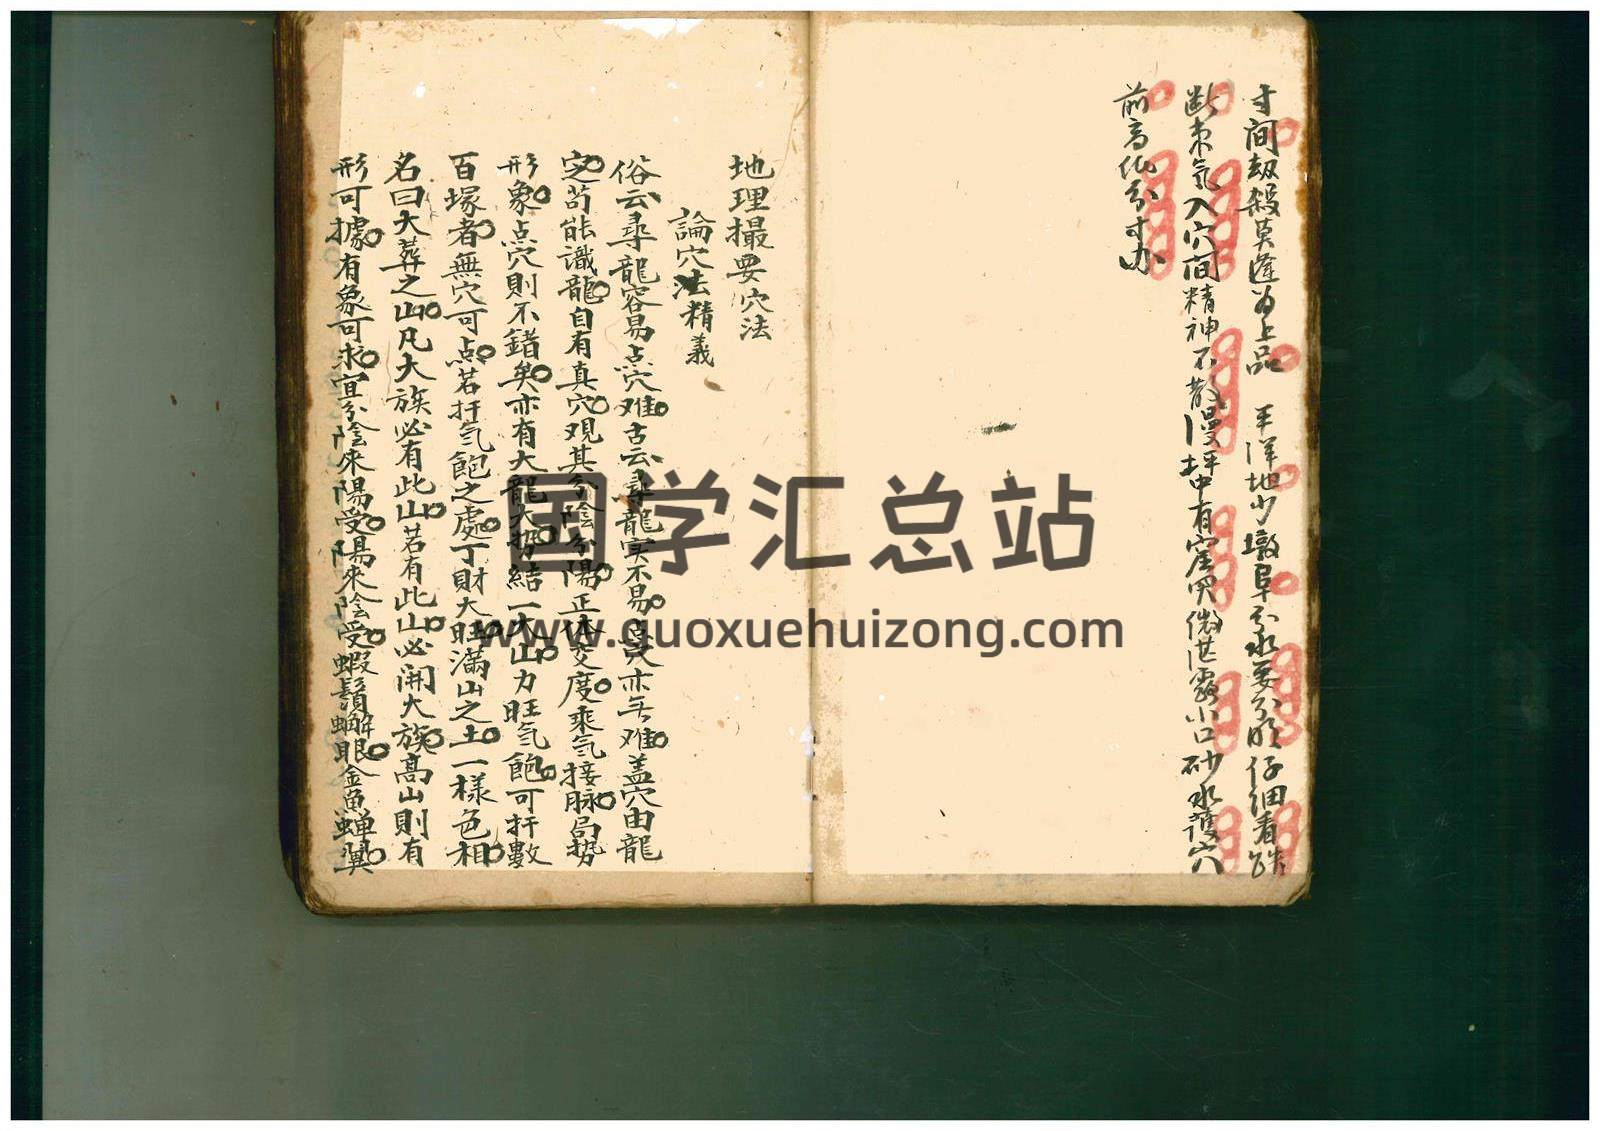 寸間劫殺莫逢為上品　平洋地少墩阜分水要分明仔細看
断来氣入穴間精神不散漫坪中有窩 微茫露小口砂水護穴
前高低分寸办
地理撮要穴法
論穴法精義
俗云尋龍容易点穴难古云尋龍实不易点穴亦无难盖穴由龍
定苟能識龍自有真穴观其分陰分陽正体交度乘气接脉局势
形象点穴則不錯矣亦有大龍大势結一大山力旺气飽可扦數
百塚者無穴可点若扦气飽之處丁財大旺滿山之土一樣色相
名曰大葬之山凡大族必有此山若有此山必開大族高山則有
形可據有象可求宜分陰來陽受陽來陰受蝦鬚蠏眼金魚蝉翼
国学汇总站
www.guoxuehuizong.com